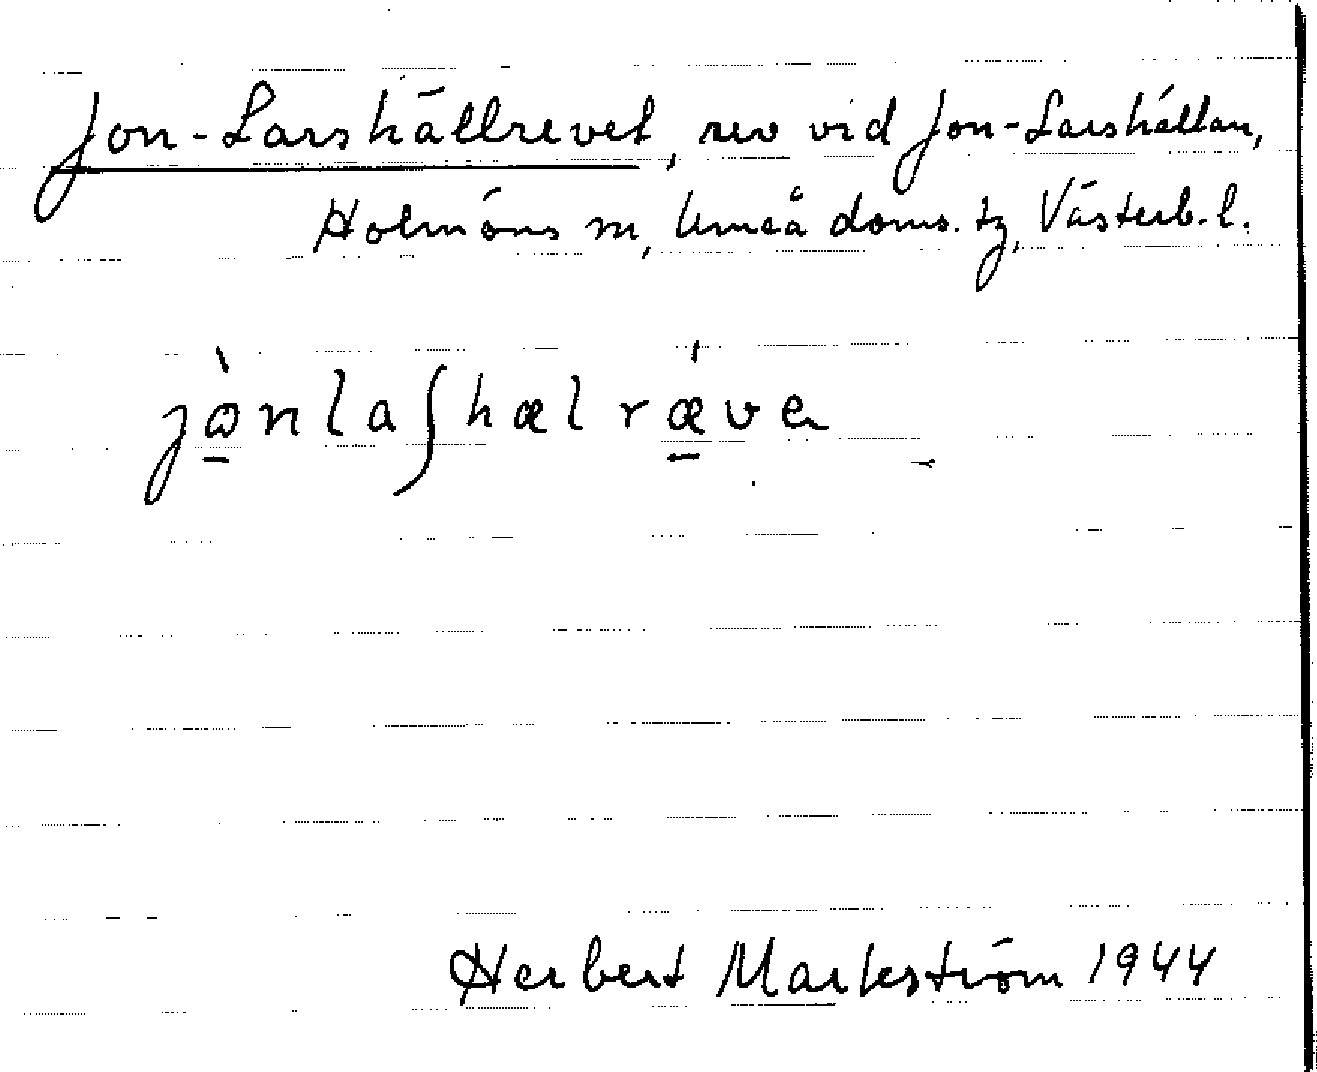 Jon-Larshällrevet, rev vid Jon-Larshällan,
Holmöns sn, Umeå doms. tg, Västerb. l.
jὼnlaʃhælrǽve
Herbert Markström 1944